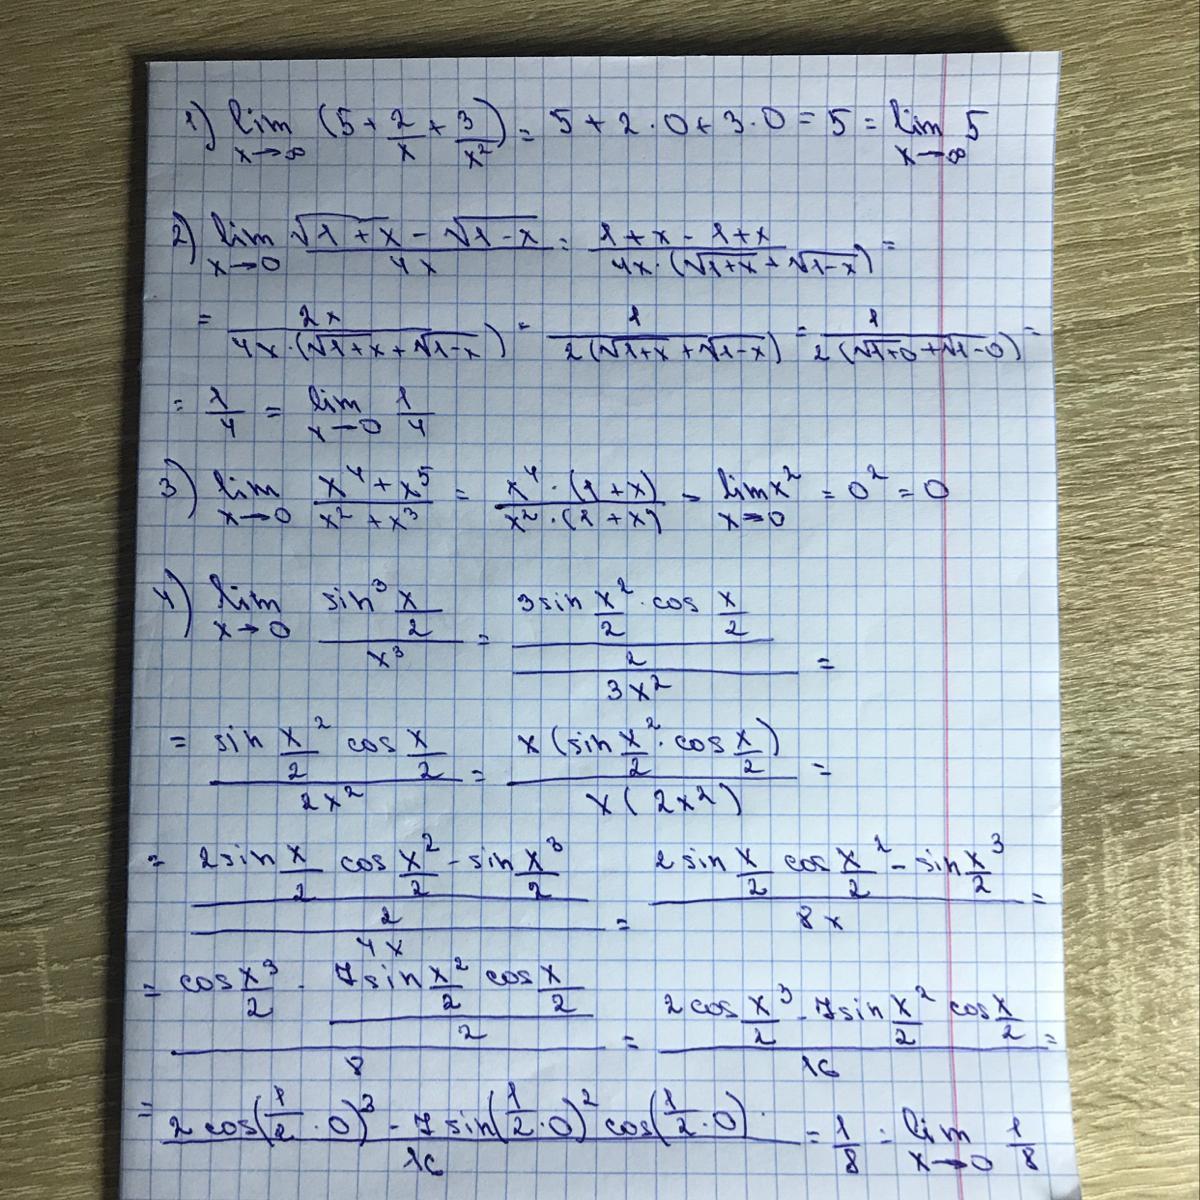 1) lim x→∞ (5 + 2/x + 3/x²) = 5 + 2·0 + 3·0 = 5 = lim x→∞ 5
2) lim x→0 (√1+x − √1−x)/4x = (1+x−1+x)/(4x·(√1+x + √1−x)) =
= 2x/(4x·(√1+x + √1−x)) = 1/(2(√1+x + √1−x)) = 1/(2(√1+0 + √1−0)) =
= 1/4 = lim x→0 1/4
3) lim x→0 (x⁴+x⁵)/(x²+x³) = (x⁴·(1+x))/(x²·(1+x)) = lim x→0 x² = 0² = 0
4) lim x→0 (sin³ x/2)/x³ = ((3 sin x/2 ² · cos x/2)/2)/3x² =
= (sin x/2 ² cos x/2)/2x² = (x(sin x/2 ² · cos x/2))/(x(2x²)) =
= ((2 sin x/2 cos x/2 ² − sin x/2 ³)/2)/4x = (2 sin x/2 cos x/2 ² − sin x/2 ³)/8x =
= (cos x/2 ³ − (7 sin x/2 ² cos x/2)/2)/8 = (2 cos x/2 ³ − 7 sin x/2 ² cos x/2)/16 =
= (2 cos(1/2·0)³ − 7 sin(1/2·0)² cos(1/2·0))/16 = 1/8 = lim x→0 1/8